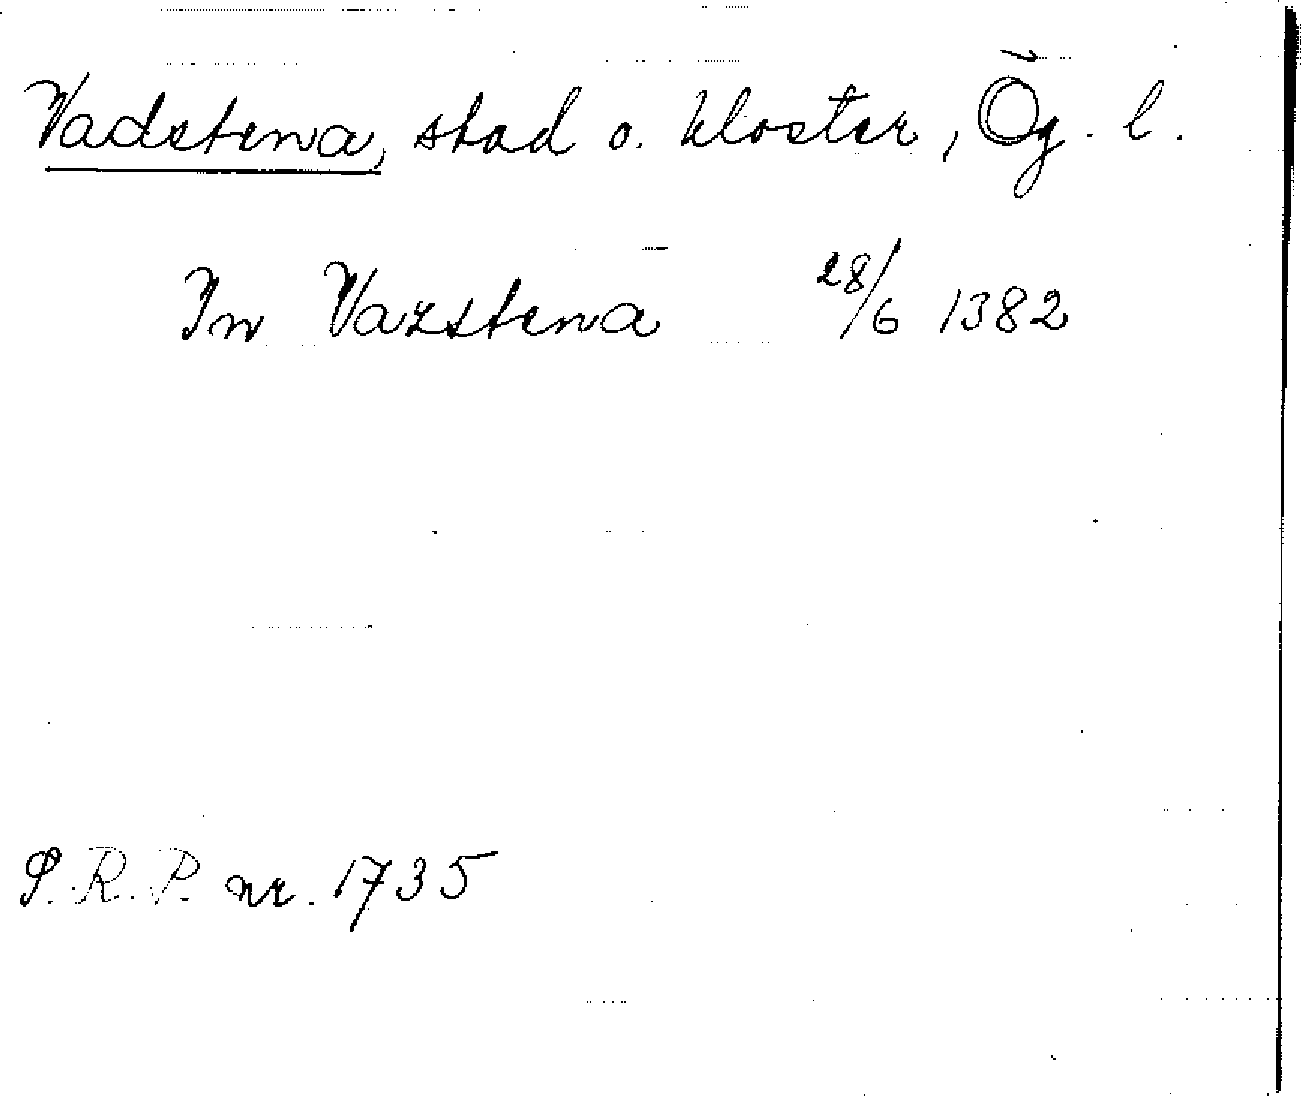 Vadstena, stad o. kloster, Ög. l.
In Vazstena 28/6 1382
S.R.P. nr. 1735